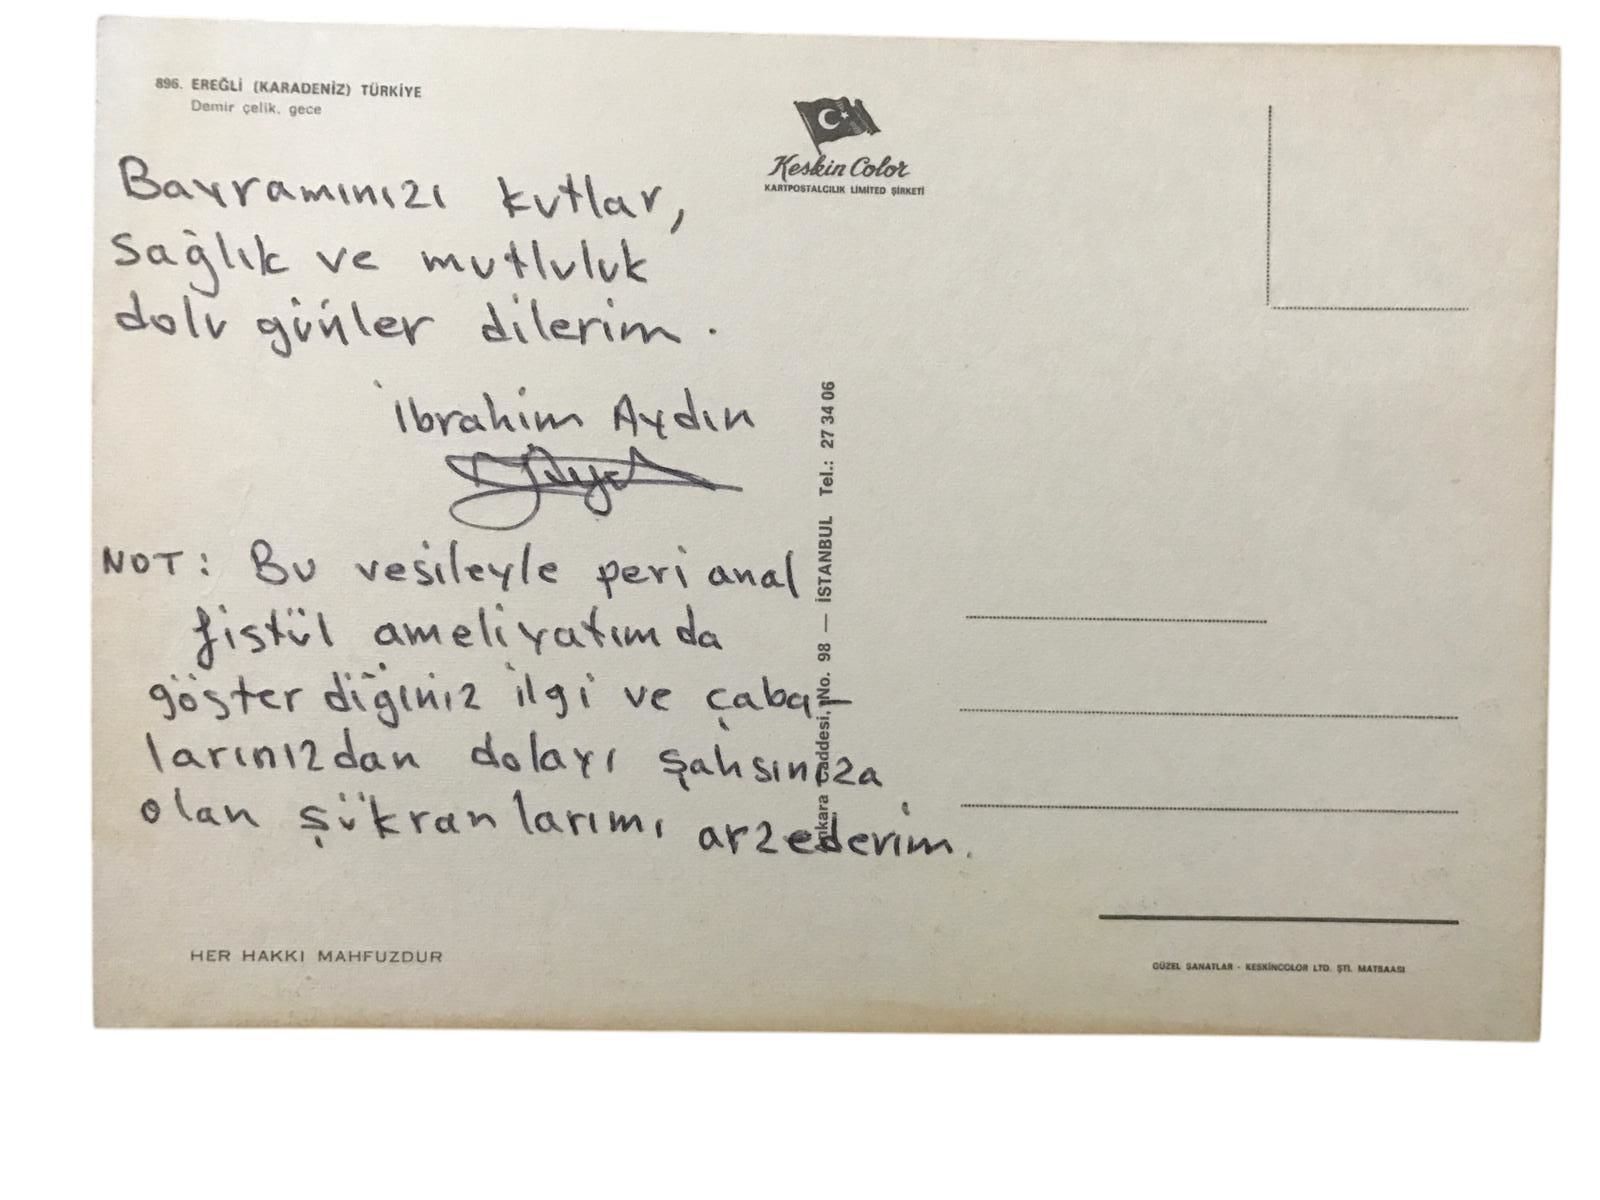 896. EREĞLİ (KARADENİZ) TÜRKİYE
Demir çelik, gece
Keskin Color
KARTPOSTALCILIK LİMİTED ŞİRKETİ
Bayramınızı kutlar,
sağlık ve mutluluk
dolu günler dilerim.
İbrahim Aydın
NOT: Bu vesileyle peri anal
fistül ameliyatımda
gösterdiğiniz ilgi ve çaba-
larınızdan dolayı şahsınıza
olan şükranlarımı arzederim.
Ankara Caddesi, No. 98 — İSTANBUL Tel.: 27 34 06
HER HAKKI MAHFUZDUR
GÜZEL SANATLAR - KESKİNCOLOR LTD. ŞTİ. MATBAASI